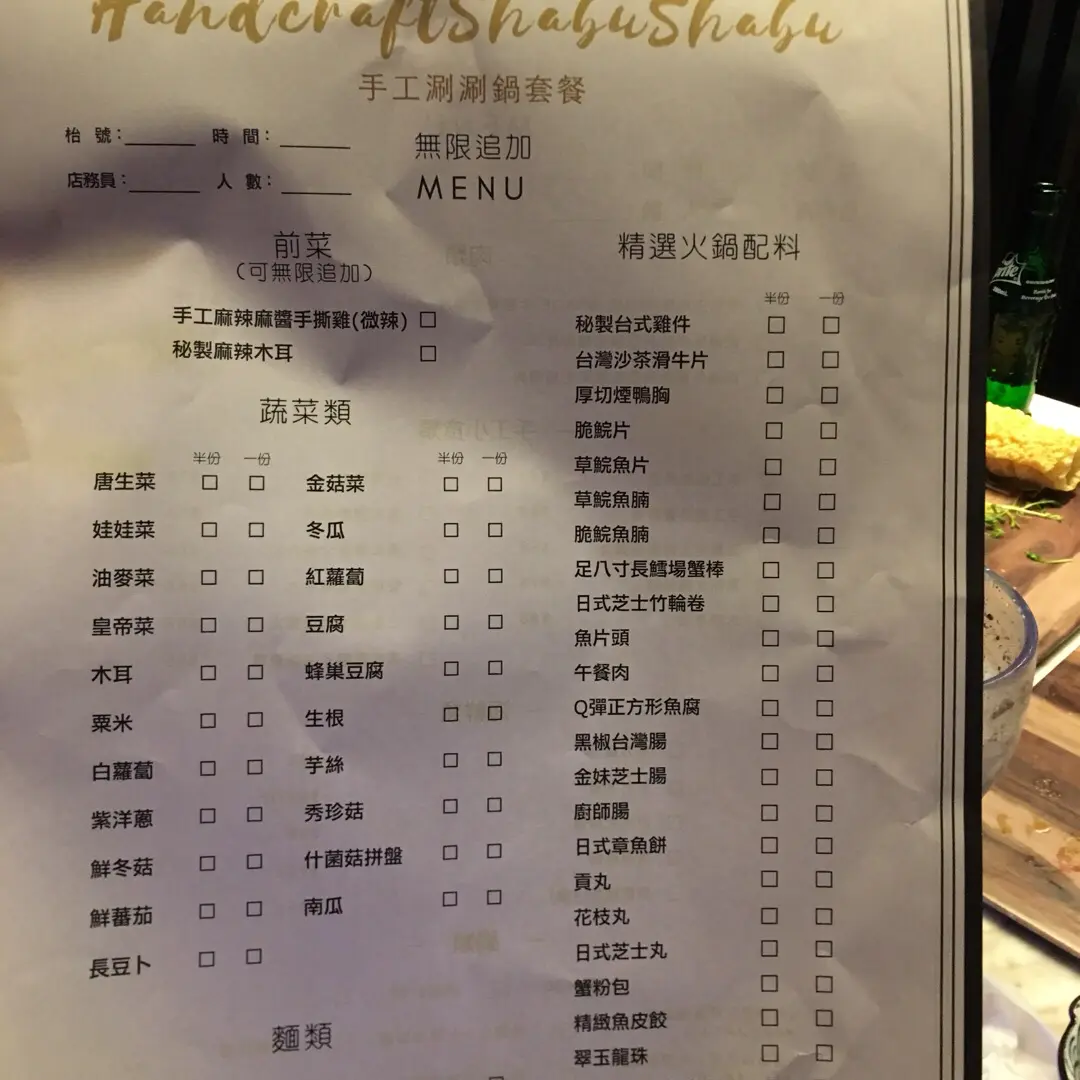 HandcraftShabuShabu
手工涮涮鍋套餐
枱 號：______ 時 間：______
店務員：______ 人 數：______
無限追加
MENU
前菜
（可無限追加）
手工麻辣麻醬手撕雞(微辣) □
秘製麻辣木耳 □
蔬菜類
半份 一份 半份 一份
唐生菜 □ □ 金菇菜 □ □
娃娃菜 □ □ 冬瓜 □ □
油麥菜 □ □ 紅蘿蔔 □ □
皇帝菜 □ □ 豆腐 □ □
木耳 □ □ 蜂巢豆腐 □ □
粟米 □ □ 生根 □ □
白蘿蔔 □ □ 芋絲 □ □
紫洋蔥 □ □ 秀珍菇 □ □
鮮冬菇 □ □ 什菌菇拼盤 □ □
鮮蕃茄 □ □ 南瓜 □ □
長豆卜 □ □
麵類
精選火鍋配料
半份 一份
秘製台式雞件 □ □
台灣沙茶滑牛片 □ □
厚切煙鴨胸 □ □
脆鯇片 □ □
草鯇魚片 □ □
草鯇魚腩 □ □
脆鯇魚腩 □ □
足八寸長鱈場蟹棒 □ □
日式芝士竹輪卷 □ □
魚片頭 □ □
午餐肉 □ □
Q彈正方形魚腐 □ □
黑椒台灣腸 □ □
金妹芝士腸 □ □
廚師腸 □ □
日式章魚餅 □ □
貢丸 □ □
花枝丸 □ □
日式芝士丸 □ □
蟹粉包 □ □
精緻魚皮餃 □ □
翠玉龍珠 □ □